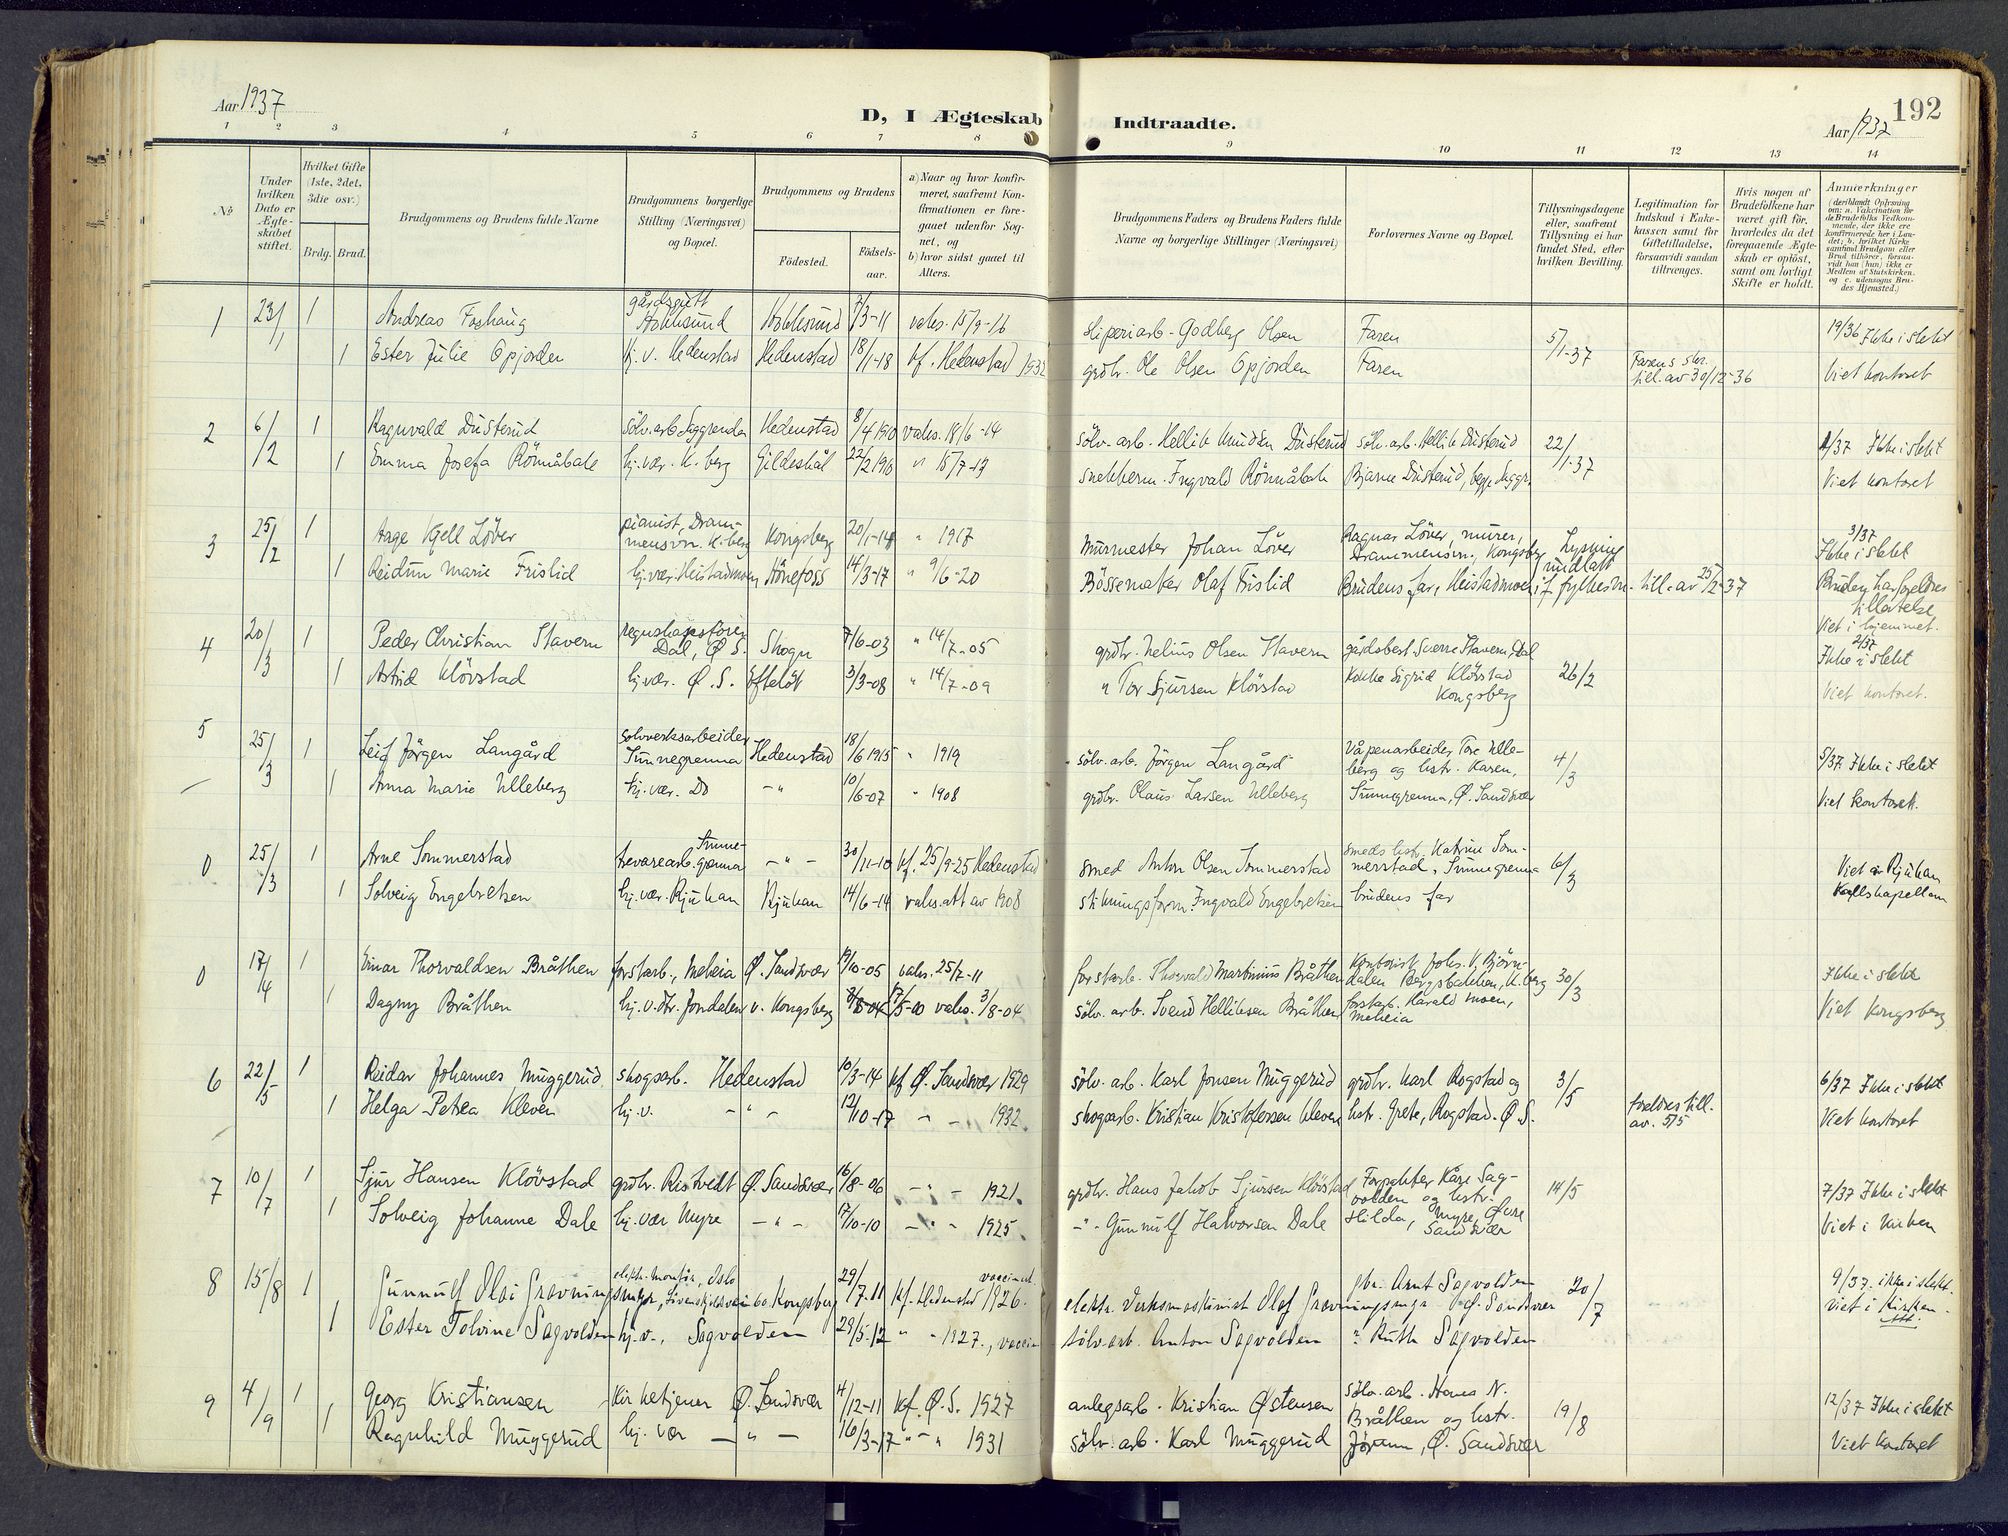 Aar 1937
D, I Ægteskab Indtraadte.
192
Aar 1937
1 2 3 4 5 6 7 8 9 10 11 12 13 14
No
Under hvilken Dato er Ægteskabet stiftet.
Hvilket Gifte (1ste, 2det, 3die osv.)
Brdg. Brud.
Brudgommens og Brudens fulde Navne
Brudgommens borgerlige Stilling (Næringsvei) og Bopæl.
Brudgommens og Brudens
Fødested.
Fødselsaar.
a) Naar og hvor konfirmeret, saafremt Konfirmationen er foregaaet udenfor Sognet, og
b) hvor sidst gaaet til Alters.
Brudgommens Faders og Brudens Faders fulde Navne og borgerlige Stillinger (Næringsvei)
Forlovernes Navne og Bopæl.
Tillysningsdagene eller, saafremt Tillysning ei har fundet Sted, efter hvilken Bevilling.
Legitimation for Indskud i Enkekassen samt for Giftetilladelse, forsaavidt saadan tiltrænges.
Hvis nogen af Brudefolkene har været gift før, hvorledes da det foregaaende Ægteskab er opløst, samt om lovligt Skifte er holdt.
Anmærkninger (deriblandt Oplysning om: a. Vaccination for de Brudefolks Vedkommende, der ikke ere konfirmerede her i Landet; b. hvilket Kirkesamfund Brudgom eller Brud tilhører, forsaavidt han (hun) ikke er Medlem af Statskirken, og c. udensogns Brudes Hjemsted.)
1 23/1 1 Andreas Foshaug gårdsgutt Hokksund Hokksund 7/3-11 vaks. 15/9-16 sliperiarb. Godberg Olsen Faren 5/1-37 19/36 Ikke i slekt
1 Ester Julie Opjorden hj. v. Hedenstad Hedenstad 18/1-18 kf. Hedenstad 1932 grdbr. Ole Olsen Opjorden Faren Farens skr. till. av 30/12-36 Viet kontoret
2 6/2 1 Ragnvald Dusterud sølv. arb. Saggrenda Hedenstad 8/4 1910 vaks. 18/6-14 sølv. arb. Hellik Knudsen Dusterud sølv. arb. Hellik Dusterud 22/1-37 1/37 Ikke i slekt
1 Emma Josefa Rönnåbakk hj. vær. K.berg Gildeskål 22/2 1910 " 15/7-13 snekkerm. Ingvald Rönnåbakk Bjarne Dusterud, begge Saggr. Viet kontoret
3 25/2 1 Aage Kjell Löver pianist, Drammensvn. K.berg Kongsberg 20/1-14 " 1917 Murmester Johan Löver Ragnar Löver, murer, Drammensvn., Kongsberg Lysning undlatt 3/37 Ikke i slekt
1 Reidun Marie Frislid hj. vær. Heistadmoen Hönefoss 14/3-17 " 9/6-20 Bössemaker Olaf Frislid Brudens far, Heistadmoen if. fylkesm. till. av 25/2-37 Bruden har foreldres tillatelse Viet i hjemmet.
4 20/3 1 Peder Christian Stavern regnskapsförer Dal, Ø. S. Skogn 7/6-03 " 14/7-05 grdbr. Nelius Olsen Stavern gårdsbest. Sverre Stavern, Dal 26/2 2/37 Ikke i slekt
1 Astrid Klövstad hj. vær. Ø. S. Efteløt 3/3-08 " 14/7-09 " Tor Sjursen Klövstad Kokke Sigrid Klövstad Kongsberg Viet kontoret.
5 25/3 1 Leif Jörgen Langård sølvverksarbeider Sunnegrenna Hedenstad 18/6 1915 " 1919 sölv. arb. Jörgen Langård Våpenarbeider Tore Ulleberg og hstr. Karen, 4/3 5/37. Ikke i slekt
1 Anna Marie Ulleberg hj. vær. Do -"- 10/6-07 " 1908 grdbr. Olaus Larsen Ulleberg Sunnegrenna, Ø. Sandsvær Viet kontoret.
0 25/3 1 Arne Sommerstad trevarearb. Sunnegrenna -"- 30/11-10 kf. 25/9-25 Hedenstad smed Anton Olsen Sommerstad smeds hstr. Katrine Sommerstad, Sunnegrenna 6/3 Viet i Rjukan
1 Solveig Engebretsen hj. vær. Rjukan Rjukan 14/6-14 vaks. att av 1908 stikningsform. Ingvald Engebretsen brudens far
0 17/4 1 Einar Thorvaldsen Bråthen forstarb., Meheia Ø. Sandsvær 19/10-05 vaks. 25/7-11 forstarb. Thorvald Martinius Bråthen Kontorist Johs. V. Björndalen Bergsbakken, K.berg 30/3 Ikke i slekt
1 Dagny Bråthen hj. v. dtr. Jondalen v. Kongsberg 17/5-00 vaks. 3/8-04 sölv. arb. Svend Helliksen Bråthen forstarb. Harald Moen, Meheia Viet Kongsberg
6 22/5 1 Reidar Johannes Muggerud skogsarb. Hedenstad 10/3-14 kf Ø. Sandsvær 1929 sölv. arb. Karl Jonsen Muggerud grdbr. Karl Rogstad og 3/5 6/37 Ikke i slekt
1 Helga Petrea Kleven hj. v. -"- 12/10-17 " - 1932. skogsarb. Kristian Kristofersen Kleven hstr. Grete, Rogstad. Ø S. foreldres till. av. 5/5 Viet kontoret
7 10/7 1 Sjur Hansen Klövstad grdbr. Ristvedt Ø. Sandsvær 16/8-06 -"- 1921. grdbr. Hans Jakob Sjursen Klövstad Forpakter Kåre Sagvolden og hstr. 14/5 7/37 Ikke i slekt
1 Solveig Johanne Dale hj. vær Myre -"- 17/10-10 -"- 1925. -"- Gunnulf Halvorsen Dale Hilda, Myre, Øvre Sandsvær Viet i kirken
8 15/8 1 Gunnulf Olai Gravningsmyr, elektr. montør, Oslo Kongsberg 29/7-11 kf. Hedenstad 1926. vaccinert. elektr. verksmaskinist Olaf Gravningsmyr gbr. Arnt Sagvolden Ø. Sandsvær 20/7 9/37. ikke i slekt. viet i Kirken.
1 Ester Tolvine Sagvolden hj. v., Sagvolden 29/5-12 " " 1927., vaccin. sölv. arb. Anton Sagvolden " Ruth Sagvolden
9 4/9 1 Georg Kristiansen Kirketjener Ø. Sandsvær 4/12-11 kf. Ø. S. 1927 anlegsarb. Kristian Østensen sölv. arb. Hans N. Bråthen og hstr. 19/8 12/37 Ikke i slekt
1 Ragnhild Muggerud hj. vær -"- 16/3-17 " - " 1931 sölv. arb. Karl Muggerud Jörunn, Ø. Sandsvær Viet kontoret